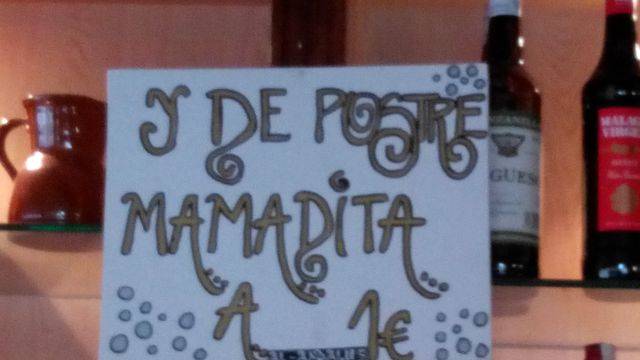 Y DE POSTRE
MAMADITA
A 1€
MALAGA
VIRGEN